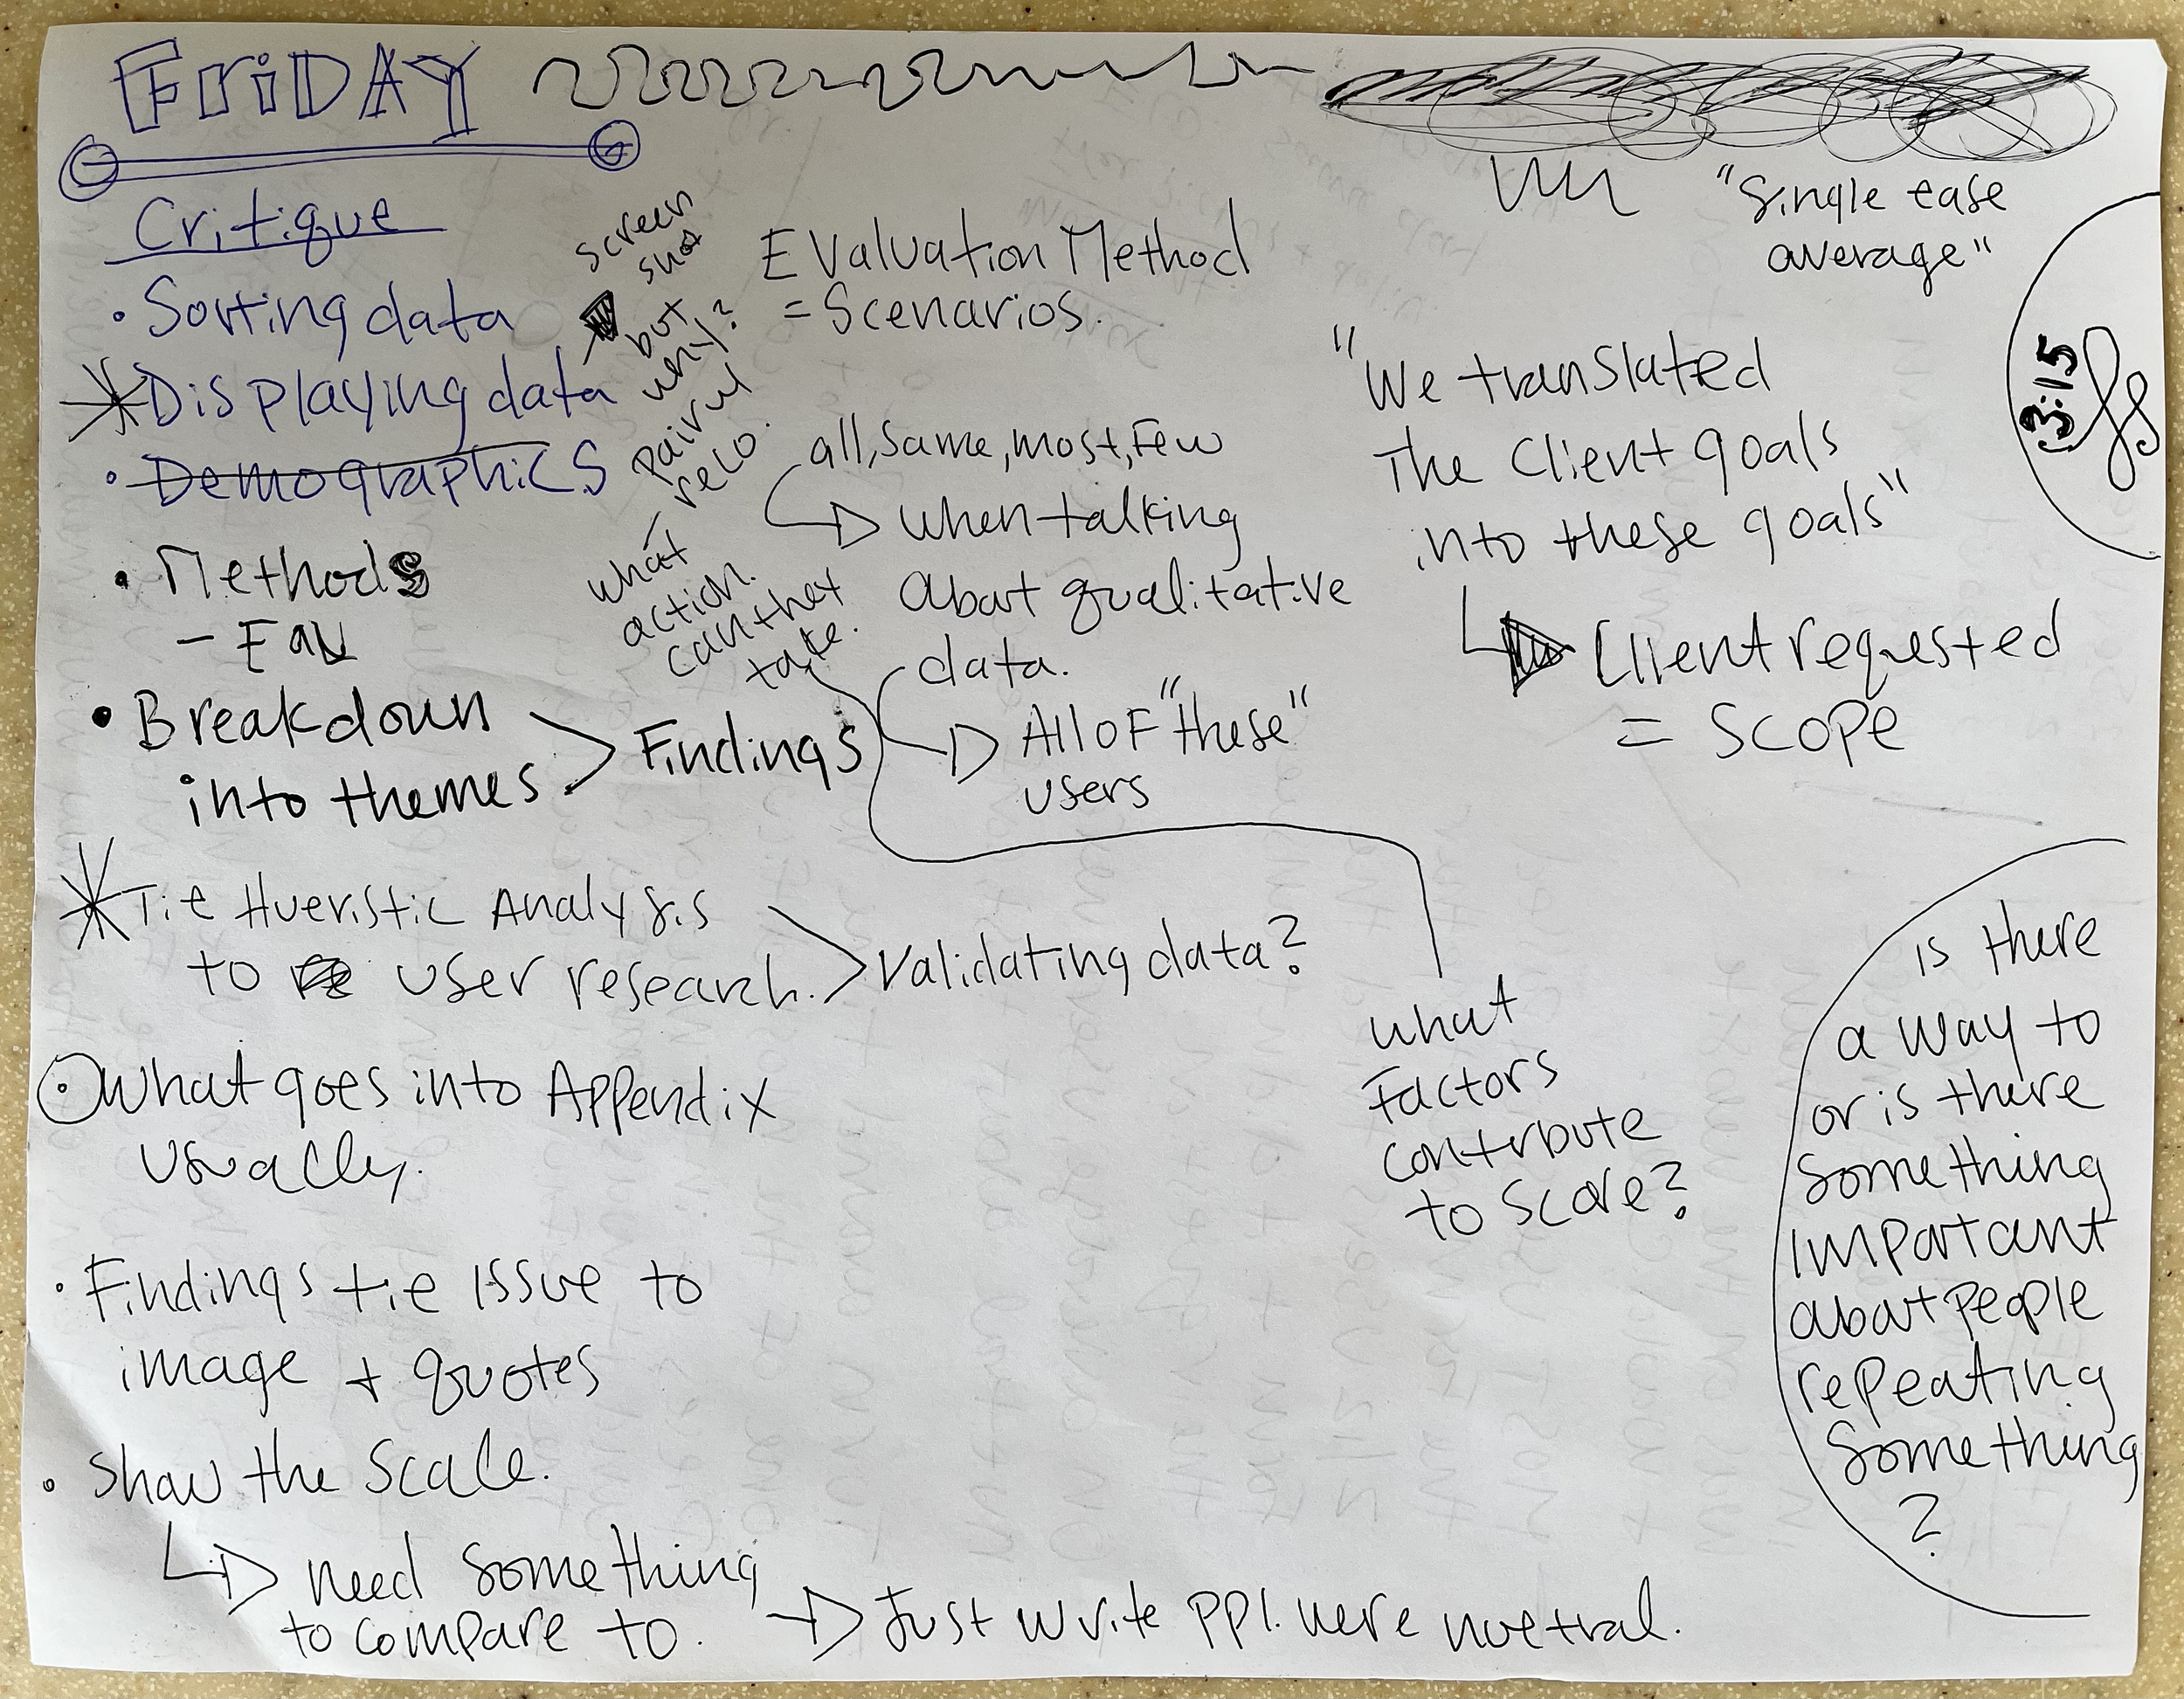 FriDAY
Critique
• Sorting data
Displaying data
• Demographics
• Methods
- Eau
• Breakdown
into themes
Findings
Tie Hueristic Analysis
to user research.
Validating data?
What goes into Appendix
usually.
• Findings tie issue to
image + quotes
• Show the scale.
need something
to compare to.
Just write ppl. were nuetral.
screen
shot
but
why?
reco.
what
action.
can they
take.
Evaluation Method
= Scenarios.
all, same, most, Few
when talking
about qualitative
data.
All oF "these"
users
"Single ease
average"
"We translated
The Client goals
into these goals"
Client requested
= SCOPE
3:15
what
Factors
contribute
to score?
is there
a way to
or is there
something
important
about people
repeating
something
?